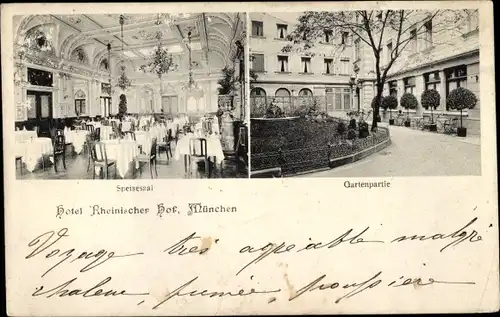 Speisesaal
Gartenpartie
Hotel Rheinischer Hof, München
Voyage très agréable malgré
chaleur, fumée, poussière